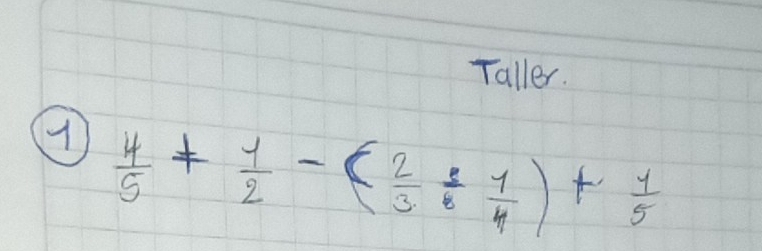 Taller.
1 4/5 + 1/2 - (2/3 : 1/4) + 1/5